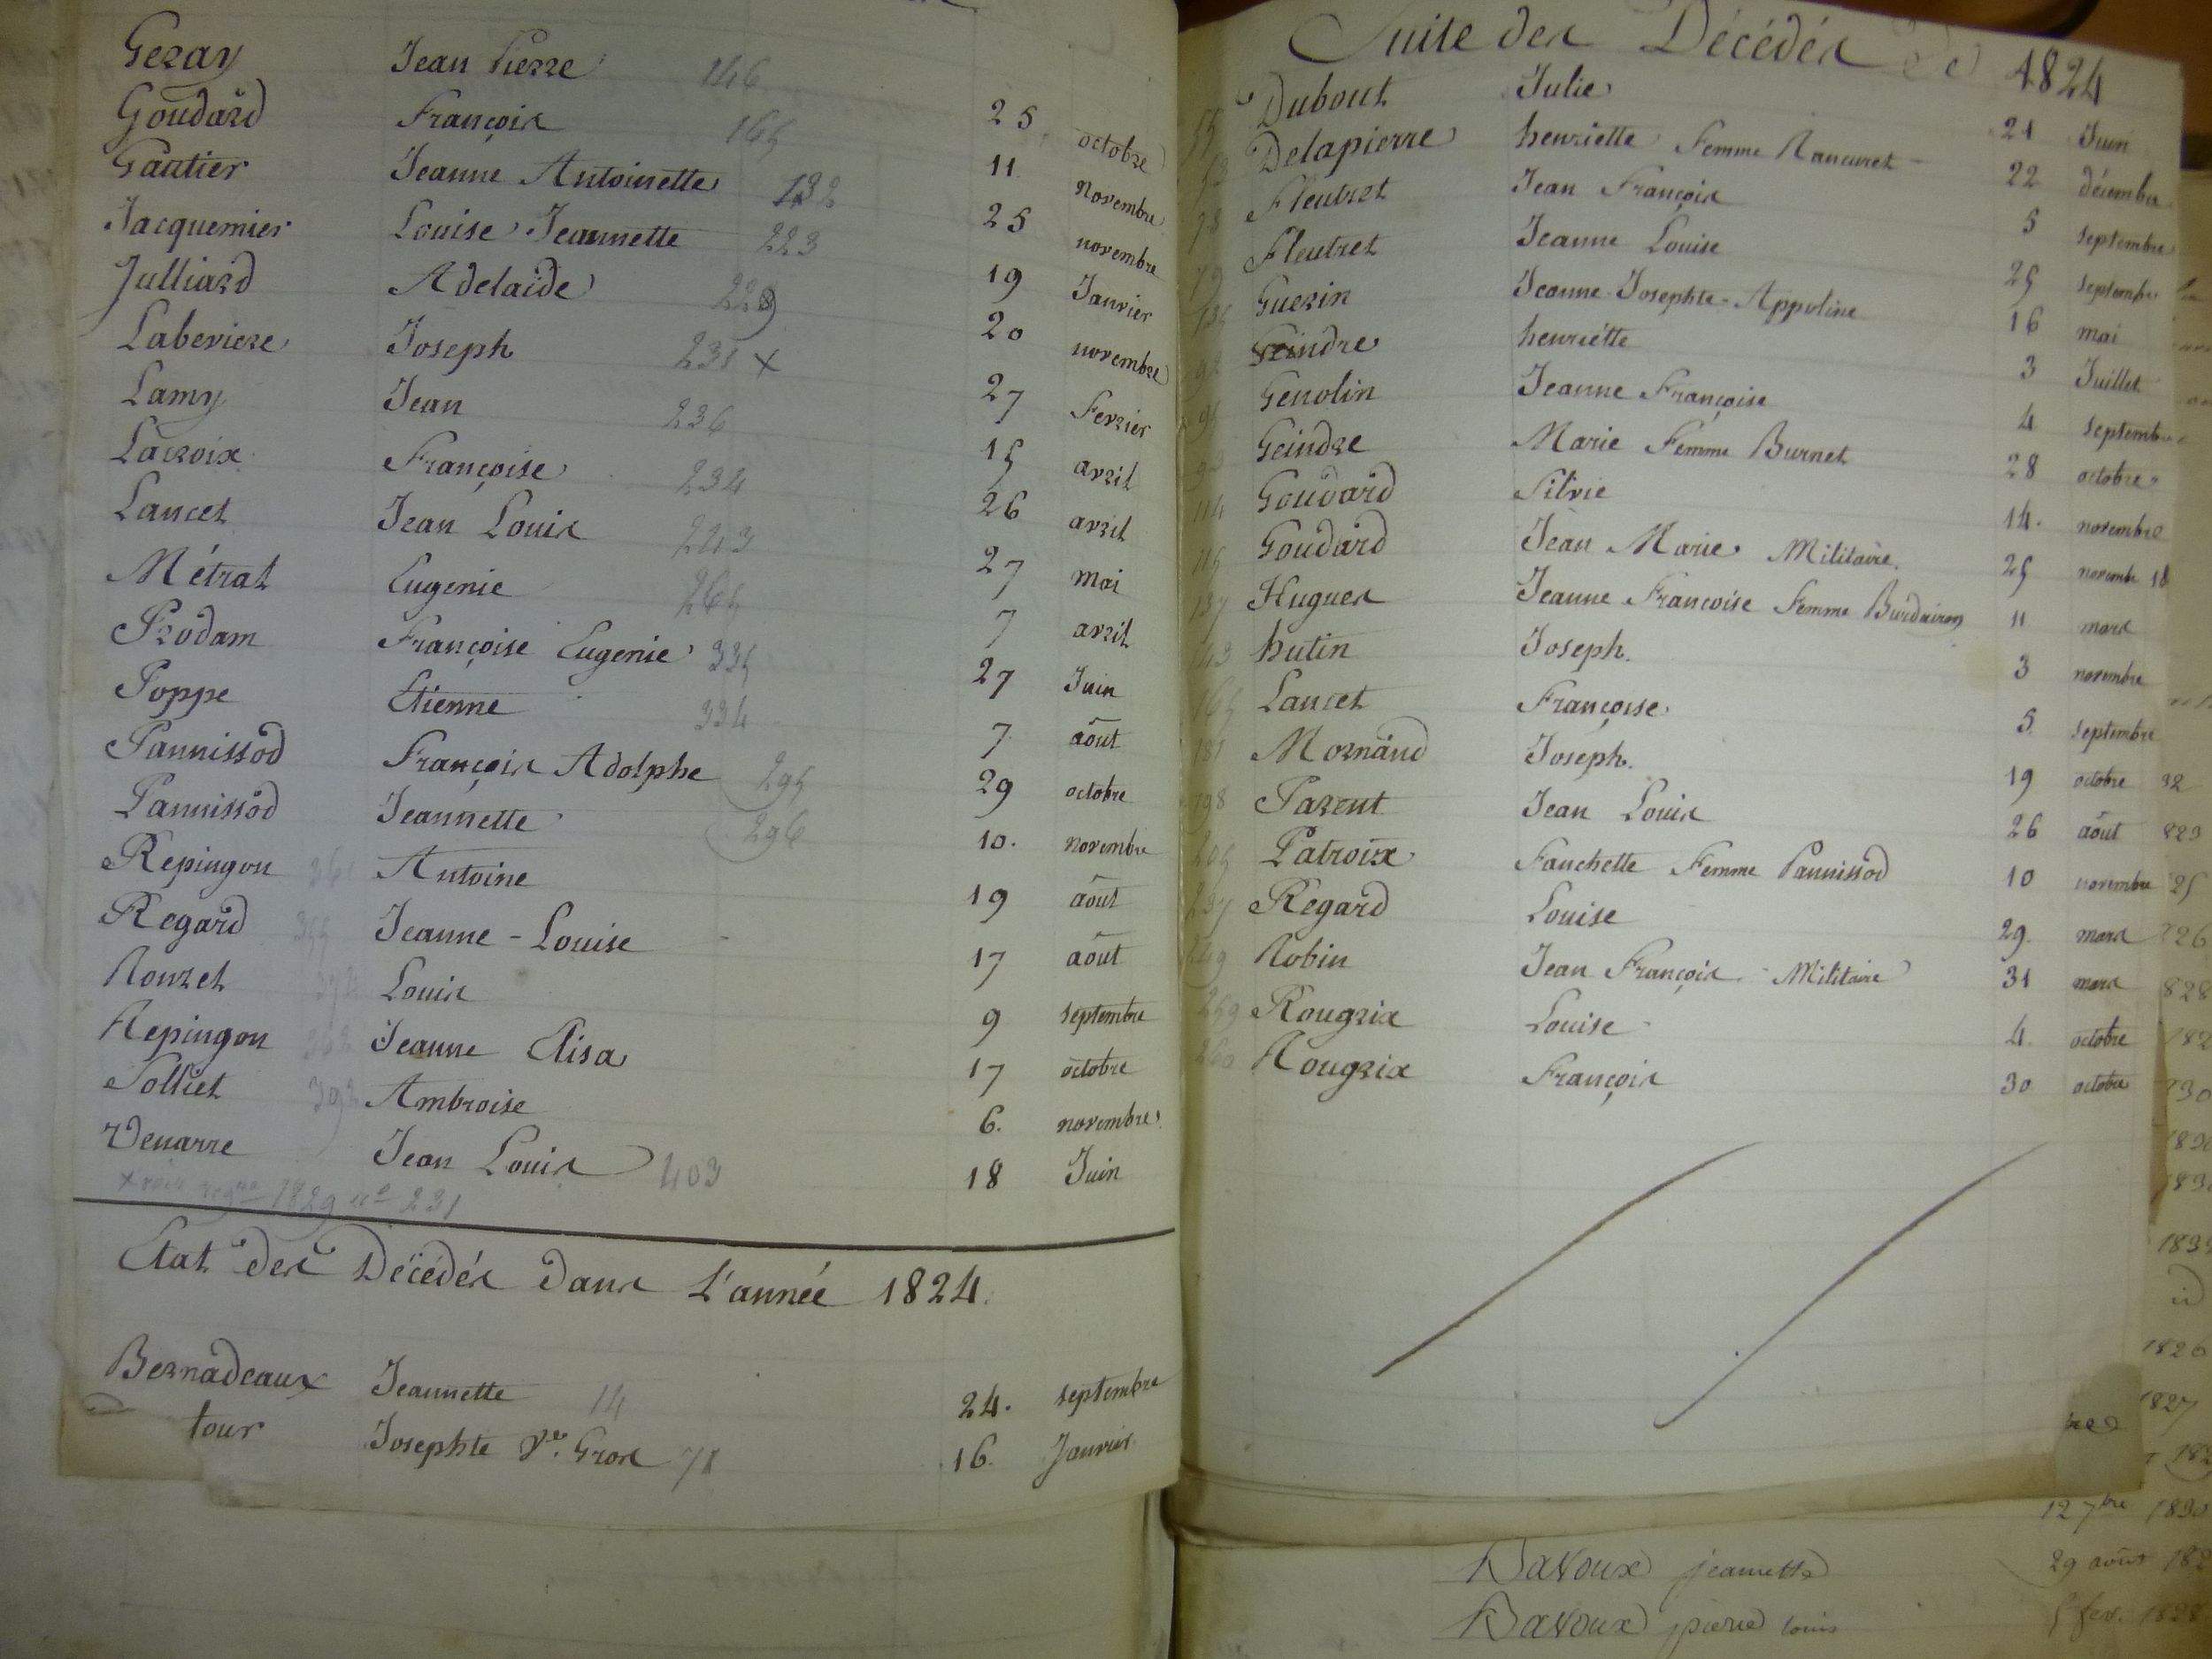 Geray Jean Pierre 146 25 octobre
Goudard François 165 11 novembre
Gautier Jeanne Antoinette 132 25 novembre
Jacquemier Louise Jeannette 223 19 Janvier
Julliard Adelaide 229 20 novembre
Laberiere Joseph 231 x 27 Fevrier
Lamy Jean 236 15 avril
Lacroix Françoise 234 26 avril
Lancet Jean Louis 243 27 mai
Métrat Eugenie 265 7 avril
Prodam Françoise Eugenie 335 27 Juin
Poppe Etienne 334 7 août
Pannissod François Adolphe 295 29 octobre
Pannissod Jeannette 296 10. novembre
Repingon 361 Antoine 19 août
Regard 355 Jeanne-Louise 17 août
Rouzet Louis 9 septembre
Repingon 362 Jeanne Elisa 17 octobre
Solliet 392 Ambroise 6. novembre
Venarre Jean Louis 403 18 Juin
x voir 1829 no 231
Etat des Décédés dans L'année 1824.
Bernadeaux Jeannette 14 24. septembre
tour Josephte Ve. Gros 71 16. Janvier
Suite des Décédés de 1824
55 Dubout Julie 21 Juin
Delapierre henriette Femme Rancuret 22 décembre
78 Fleutret Jean François 5 septembre
79 Fleutret Jeanne Louise 25 septembre
Guerin Jeanne-Josephte-Appoline 16 mai
92 Geindre henriette 3 Juillet
Genolin Jeanne Françoise 4 septembre
93 Geindre Marie Femme Burnet 28 octobre
114 Goudard Silvie 14. novembre
115 Goudard Jean Marie Militaire. 25 novembre 18
137 Hugues Jeanne Françoise Femme Burdairon 11 mars
143 hutin Joseph. 3 novembre
165 Lancet Françoise 5. septembre
181 Mornand Joseph. 19 octobre 32
198 Parent Jean Louis 26 août 823
205 Patroix Fanchette Femme Pannissod 10 novembre 25
237 Regard Louise 29. mars 826
249 Robin Jean François Militaire 31 mars 828
259 Rougrix Louise 4. octobre 182
260 Rougrix François 30 octobre 30
1820
1827
12 7bre 1830
Davoux jeannette 29 août 182
Davoux pierre louis 5 fev. 1828